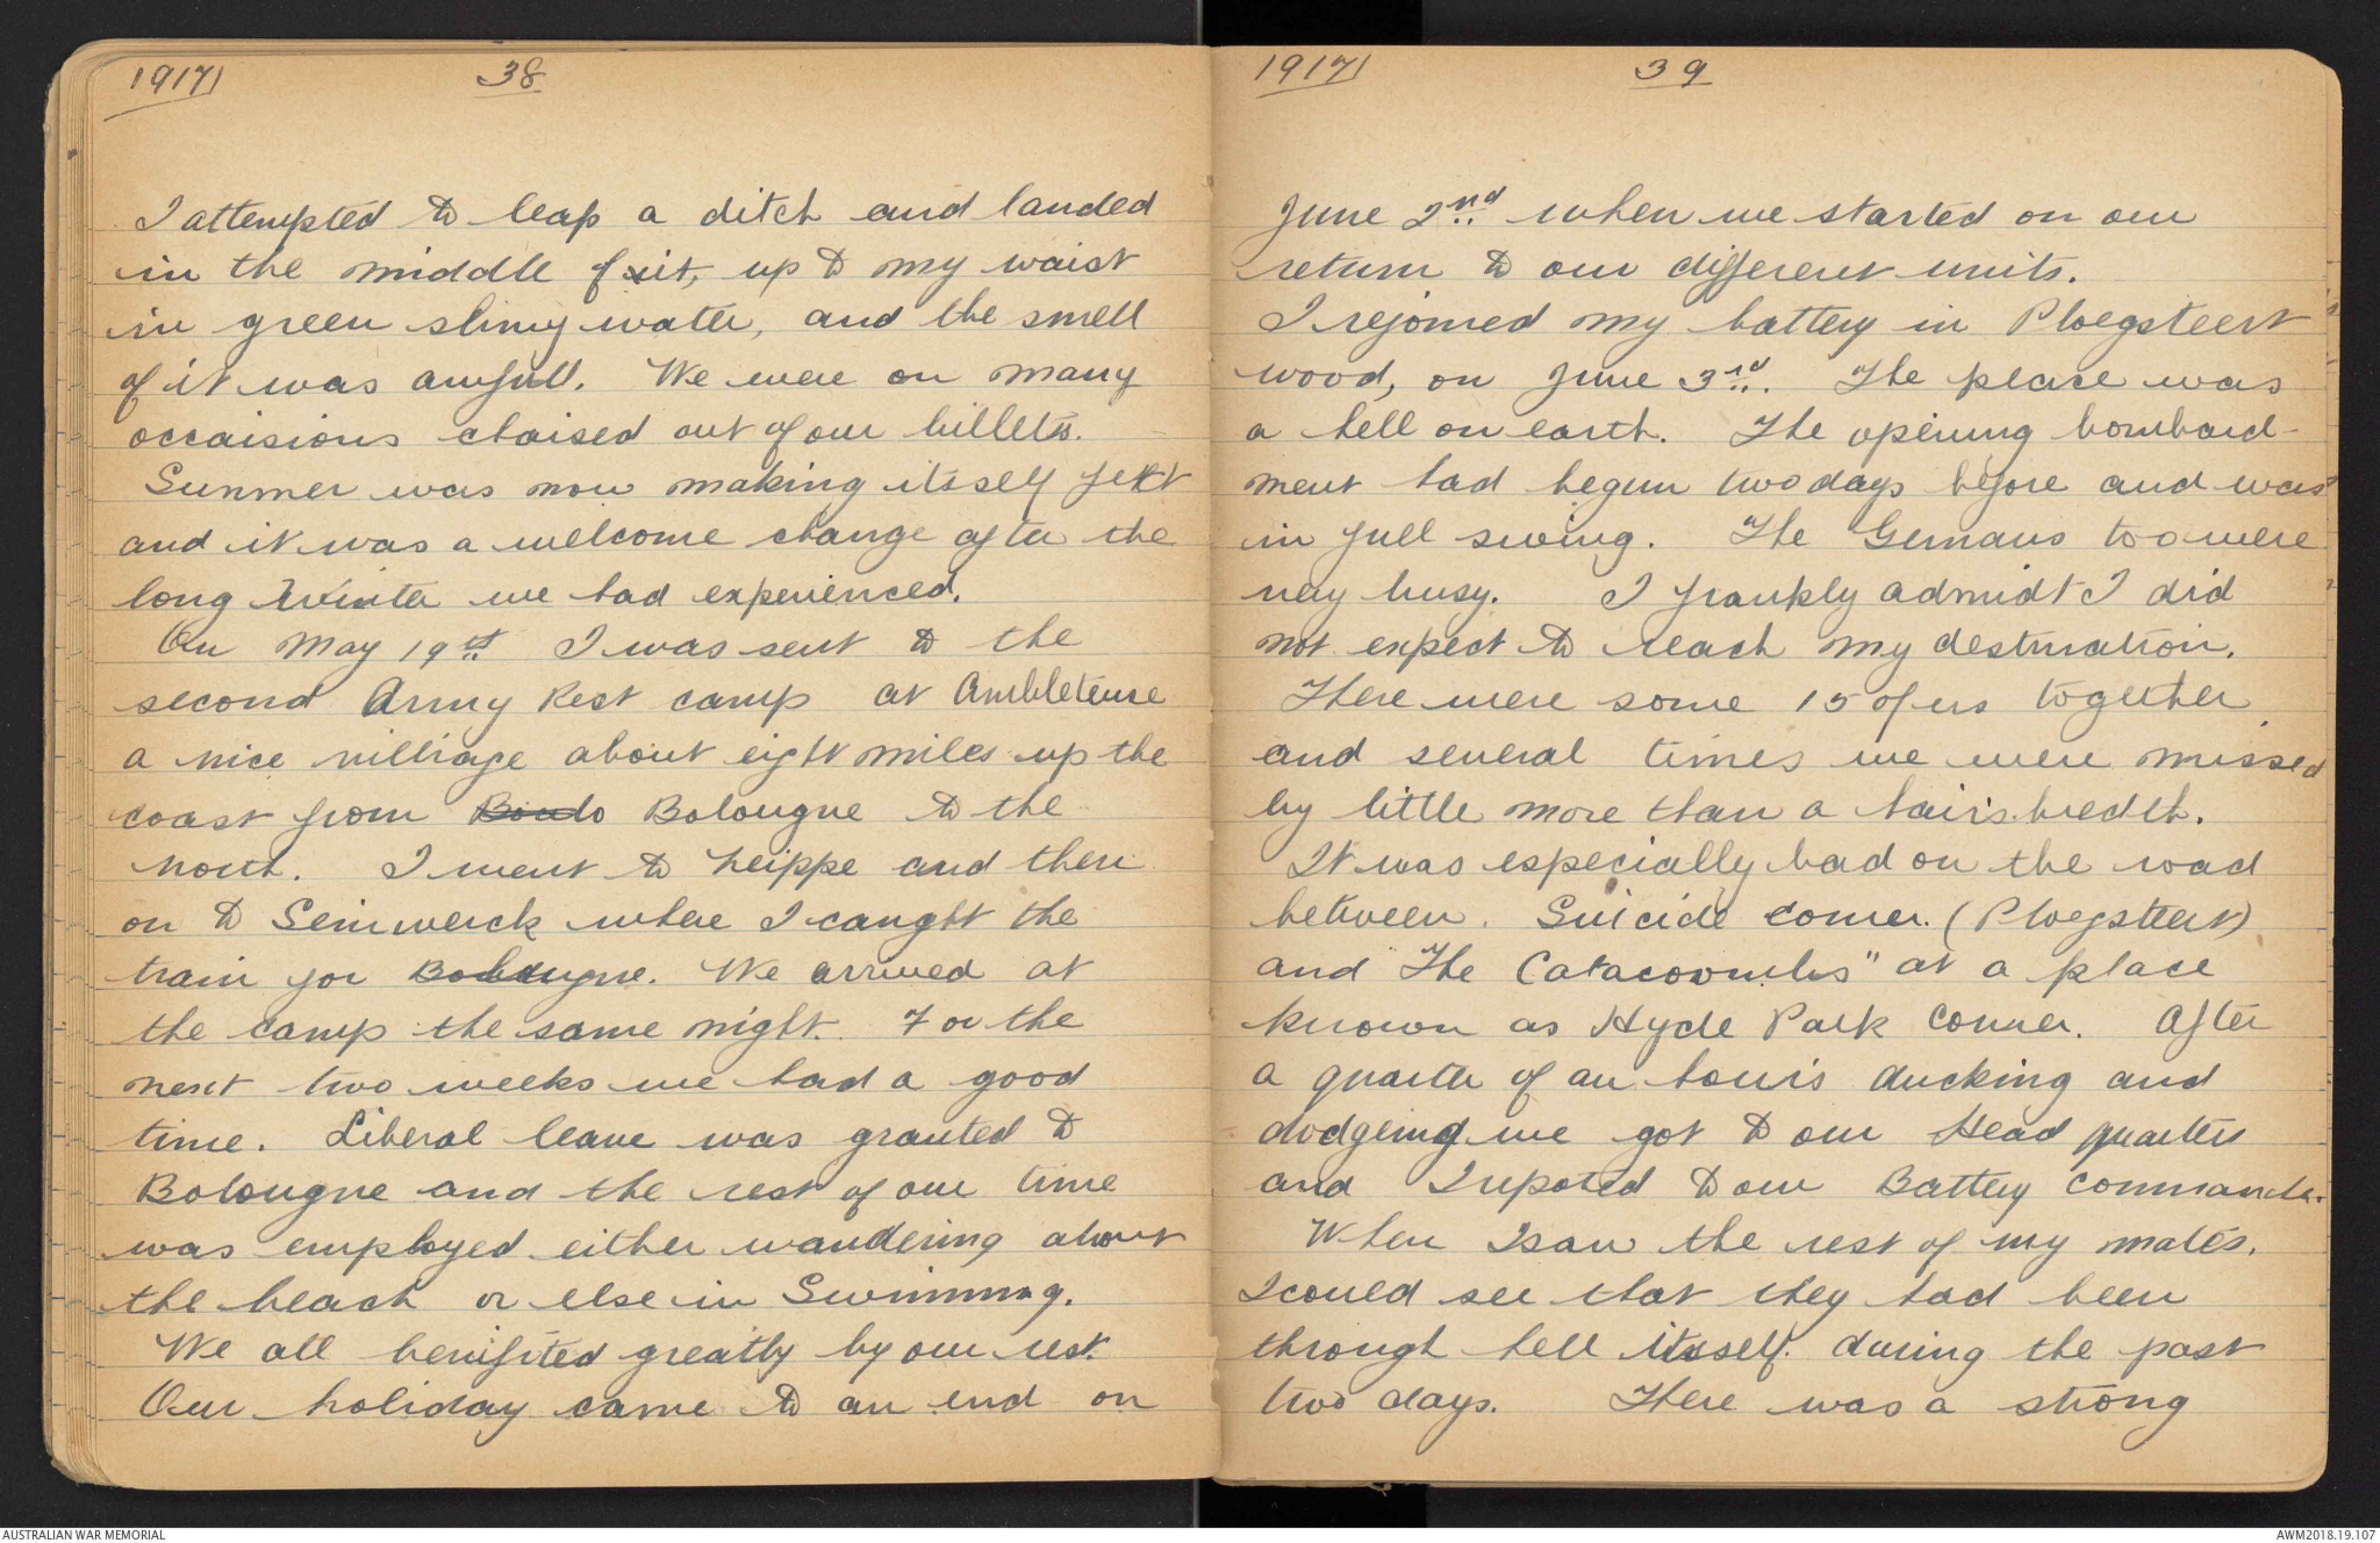 1917
38
I attempted to leap a ditch and landed
in the middle of it, up to my waist
in green slimy water, and the smell
of it was awfull. We were on many
occaisions chaised out of our billets.
Summer was now making itself felt
and it was a welcome change after the
long Winter we had experienced.
On May 19th I was sent to the
second Army Rest camp at Ambleteuse
a nice villiage about eight miles up the
coast from Boulo Bolougne to the
north. I went to Neippe and then
on to Seinwerck where I caught the
train for Bolougne. We arrived at
the camp the same night. For the
next two weeks we had a good
time. Liberal leave was granted to
Bolougne and the rest of our time
was employed either wandering about
the beach or else in Swimming.
We all benifited greatly by our rest.
Our holiday came to an end on
1917
39
June 2nd when we started on our
return to our different units.
I rejoined my battery in Ploegsteert
wood, on June 3rd. The place was
a hell on earth. The opening bombard-
ment had begun two days before and was
in full swing. The Germans too were
very busy. I frankly admidt I did
not expect to reach my destination.
There were some 15 of us together
and several times we were missed
by little more than a hair's bredth.
It was especially bad on the road
between Suicide corner. (Ploegsteert)
and "The Catacoombs" at a place
known as Hyde Park Corner. After
a quarter of an hour's ducking and
dodgeing we got to our Head quarters
and I repoted to our Battery commander.
When I saw the rest of my mates,
I could see that they had been
through hell itsself during the past
two days. There was a strong
AUSTRALIAN WAR MEMORIAL
AWM2018.19.107